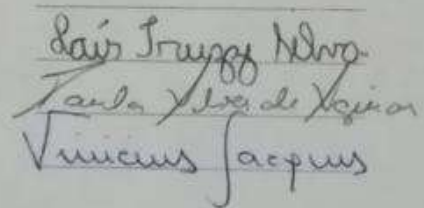 Laís Truzzi Silva
Paula Silva de
Vinicius Jacques